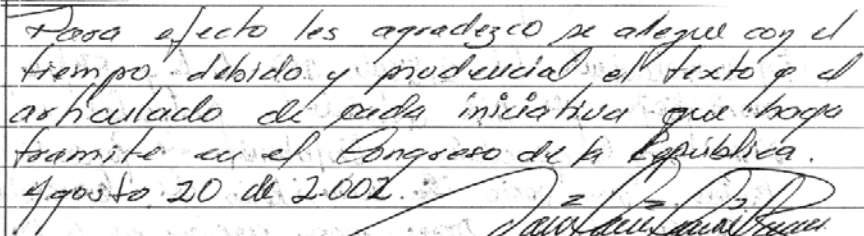 Para efecto les agradezco se allegue con el
tiempo debido y prudencial el texto o el
articulado de cada iniciativa que haga
tramite en el Congreso de la República.
Agosto 20 de 2.002.